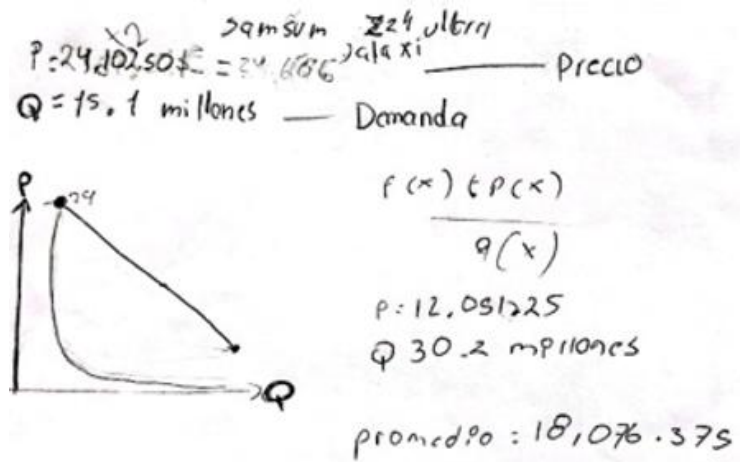 x2
samsum Z24 ultra
Jalaxi
P=24,102.50$ = Precio
Q = 15.1 millones — Demanda
P
24
Q
f(x) t P(x)
q(x)
P: 12,051.225
Q 30.2 millones
promedio: 18,076.375